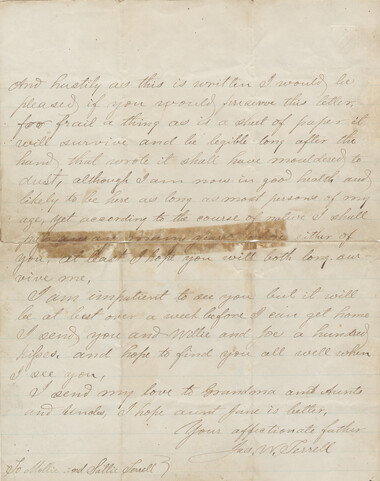 And hastily as this is written I would be
pleased if you would preserve this letter.
for frail a thing as is a sheet of paper it
will survive and be legible long after the
hand that wrote it shall have mouldered to
dust, although I am now in good health and
likely to be here as long as most persons of my
age, yet according to the course of nature I shall
ither of
you, at least I hope you will both long sur
vive me.
I am impatient to see you but it will
be at best over a week before I can get home
I send you and Willie and Joe a hundred
kisses. and hope to find you all well when
I see you,
I send my love to Grandma and Aunts
and Uncles. I hope aunt Jane is better.
Your affectionate father
Jas. W. Terrell
To Mollie and Lillie Terrell